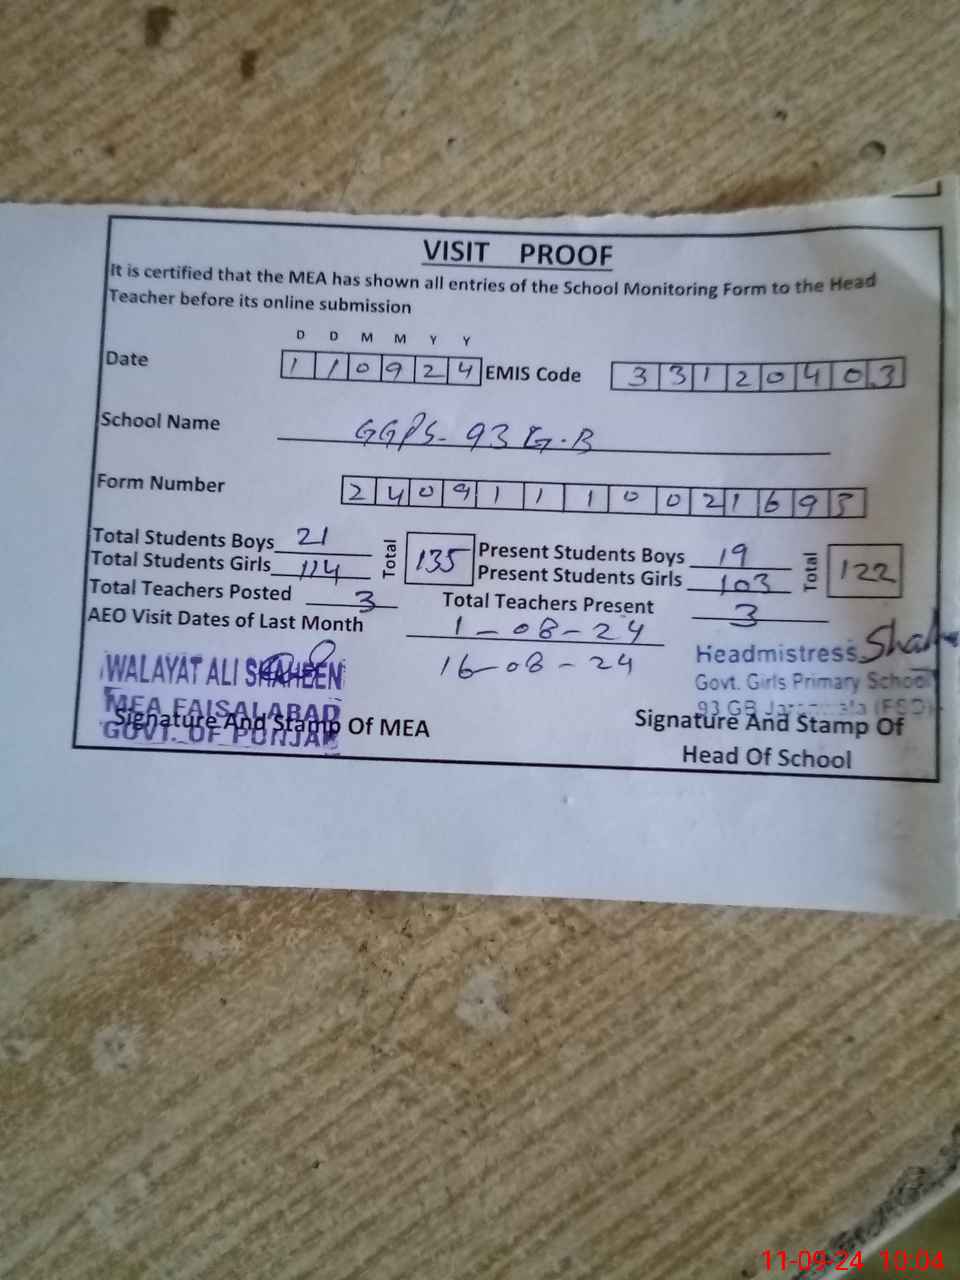 VISIT PROOF
It is certified that the MEA has shown all entries of the School Monitoring Form to the Head
Teacher before its online submission
D D M M Y Y
Date 1 1 0 9 2 4 EMIS Code 3 3 1 2 0 4 0 3
School Name GGPS- 93 G.B
Form Number 2 4 0 9 1 1 1 0 0 2 1 6 9 3
Total Students Boys 21 Total 135 Present Students Boys 19 Total 122
Total Students Girls 114 Present Students Girls 103
Total Teachers Posted 3 Total Teachers Present 3
AEO Visit Dates of Last Month 1-08-24
16-08-24
WALAYAT ALI SHAHEEN
MEA FAISALABAD
GOVT. OF PUNJAB
Signature And Stamp Of MEA
Headmistress
Govt. Girls Primary School
93 GB Jaranwala (FSD)
Signature And Stamp Of
Head Of School
11-09-24 10:04